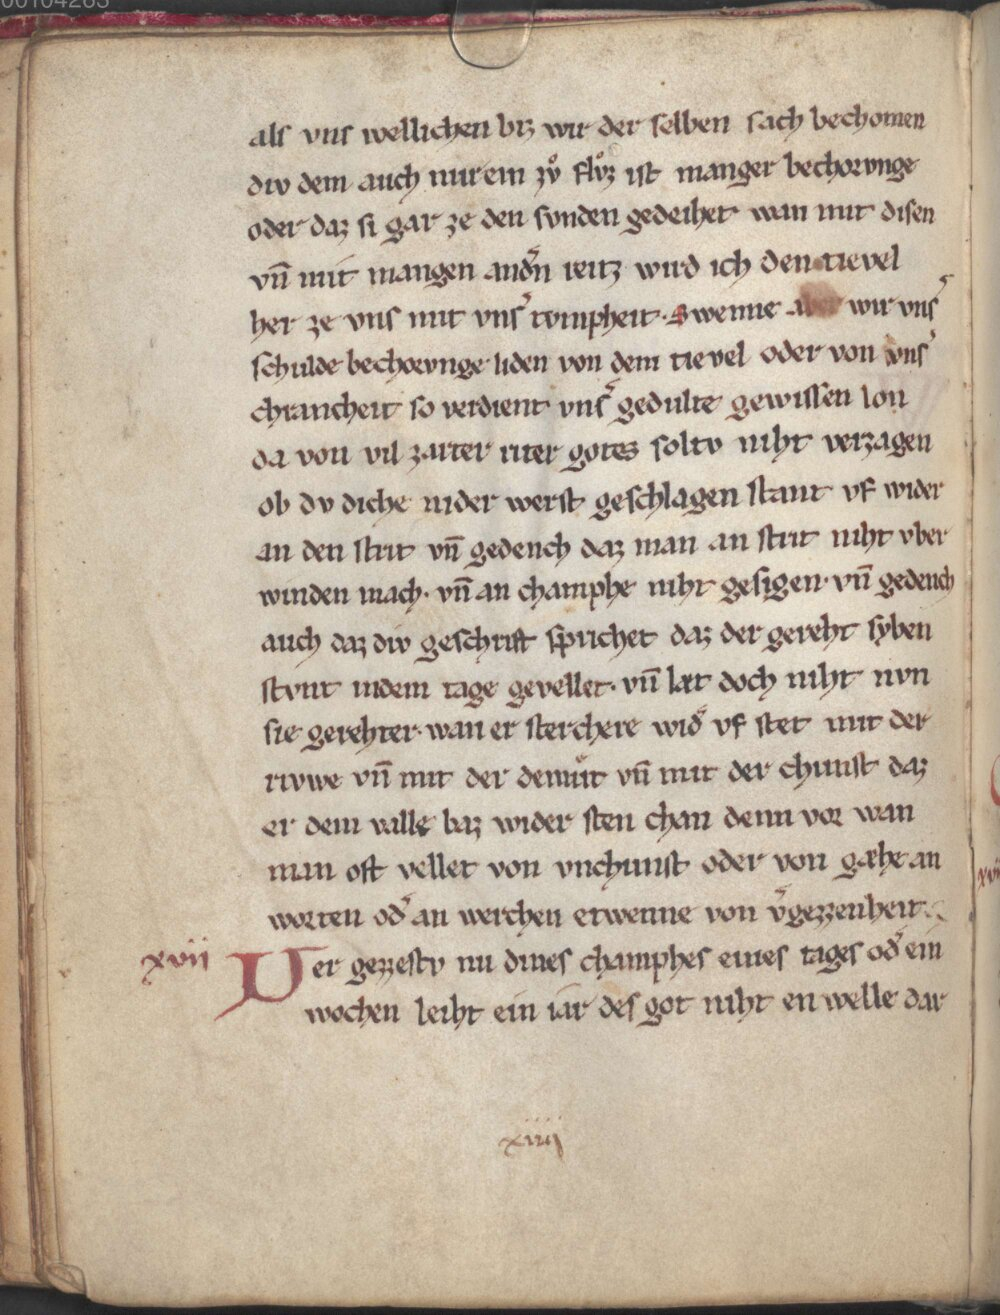 00104263
als vns wellichen biz wir der selben sach bechomen
div dem auch nur ein zuͦ fluͦz ist manger bechorvnge
oder daz si gar ze den svnden gedeihet wan mit disen
vn̄ mit mangen andn̄ reitz wird ich den tievel
her ze vns mit vnsˀ tvmpheit. Swenne aber wir vnsˀ
schulde bechorvnge liden von dem tievel oder von vnsˀ
chrancheit so verdient vnsˀ gedulte gewissen lon
da von vil zarter riter gotes soltv niht verzagen
ob dv diche nider werst geschlagen stant vf wider
an den strit vn̄ gedench daz man an strit niht vber
winden mach. vn̄ an champhe niht gesigen. vn̄ gedench
auch daz div geschrift sprichet daz der gereht syben
stvnt indem tage gevellet. vn̄ læt doch niht nvn
sie gerehter. wan er sterchere widˀ vf stet mit der
rivwe vn̄ mit der demuͤt vn̄ mit der chunst daz
er dem valle baz wider sten chan denn vor wan
man oft vellet von vnchunst oder von gæhe an
worten odˀ an werchen etwenne von vˀgezzenheit.
xvii Uer gezzestv nu dines champhes eines tages odˀ ein
wochen leiht ein iar des got niht en welle dar
xiiij